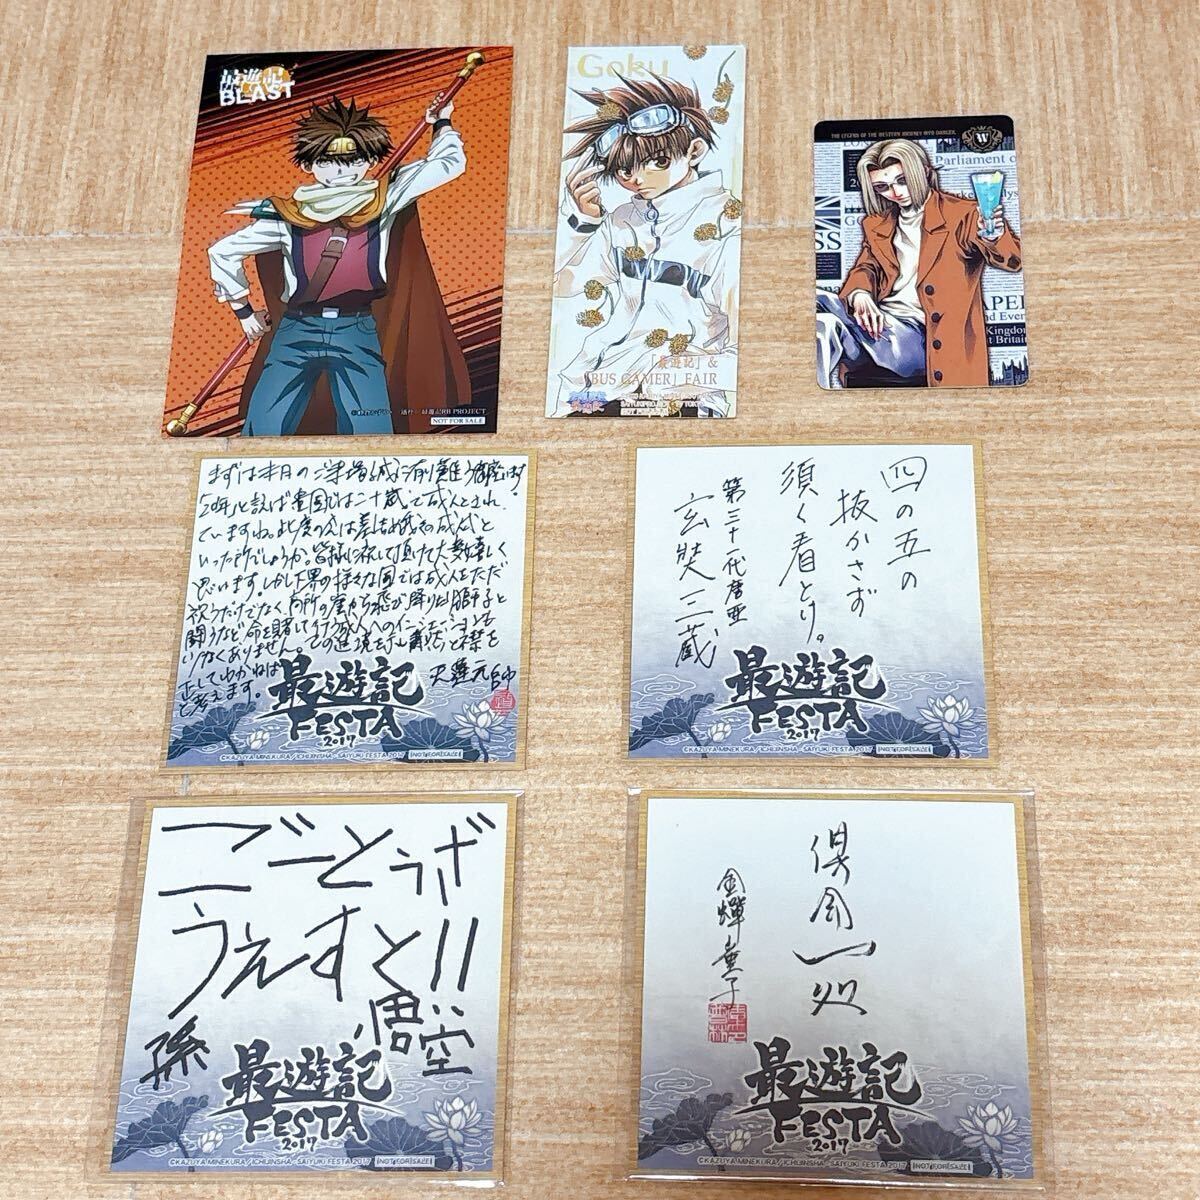 最遊記
BLAST
最遊記RB PROJECT
NOT FOR SALE
Goku
「最遊記」&
「BUS GAMER」FAIR
THE LEGEND OF THE WESTERN JOURNEY INTO DANGER.
W
Parliament o
Kingdom
Britain
まずは本日の
「20年」と言えば
では二十歳で成人とされ
ていますね。
いった所でしょうか。皆様に祝して頂けて大変嬉しく
思います。しかし下界の様々な国では成人をただ
祝うだけでなく、高所の崖から飛び降りり獅子と
闘うなど命を賭して行う成人へのイニシエーションも
少なくありません。
正してゆかねば
と考えます。
天蓬元帥
最遊記
FESTA
2017
©KAZUYA MINEKURA/ICHIJINSHA・SAIYUKI FESTA 2017 NOT FOR SALE
四の五の
抜かさず
須く着とり。
第三十一代唐亜
玄奘三蔵
最遊記
FESTA
2017
©KAZUYA MINEKURA/ICHIJINSHA・SAIYUKI FESTA 2017 NOT FOR SALE
ごーとぅざ
うぇすと!!
孫
悟空
最遊記
FESTA
2017
©KAZUYA MINEKURA/ICHIJINSHA・SAIYUKI FESTA 2017 NOT FOR SALE
倶会一処
金蟬童子
最遊記
FESTA
2017
©KAZUYA MINEKURA/ICHIJINSHA・SAIYUKI FESTA 2017 NOT FOR SALE